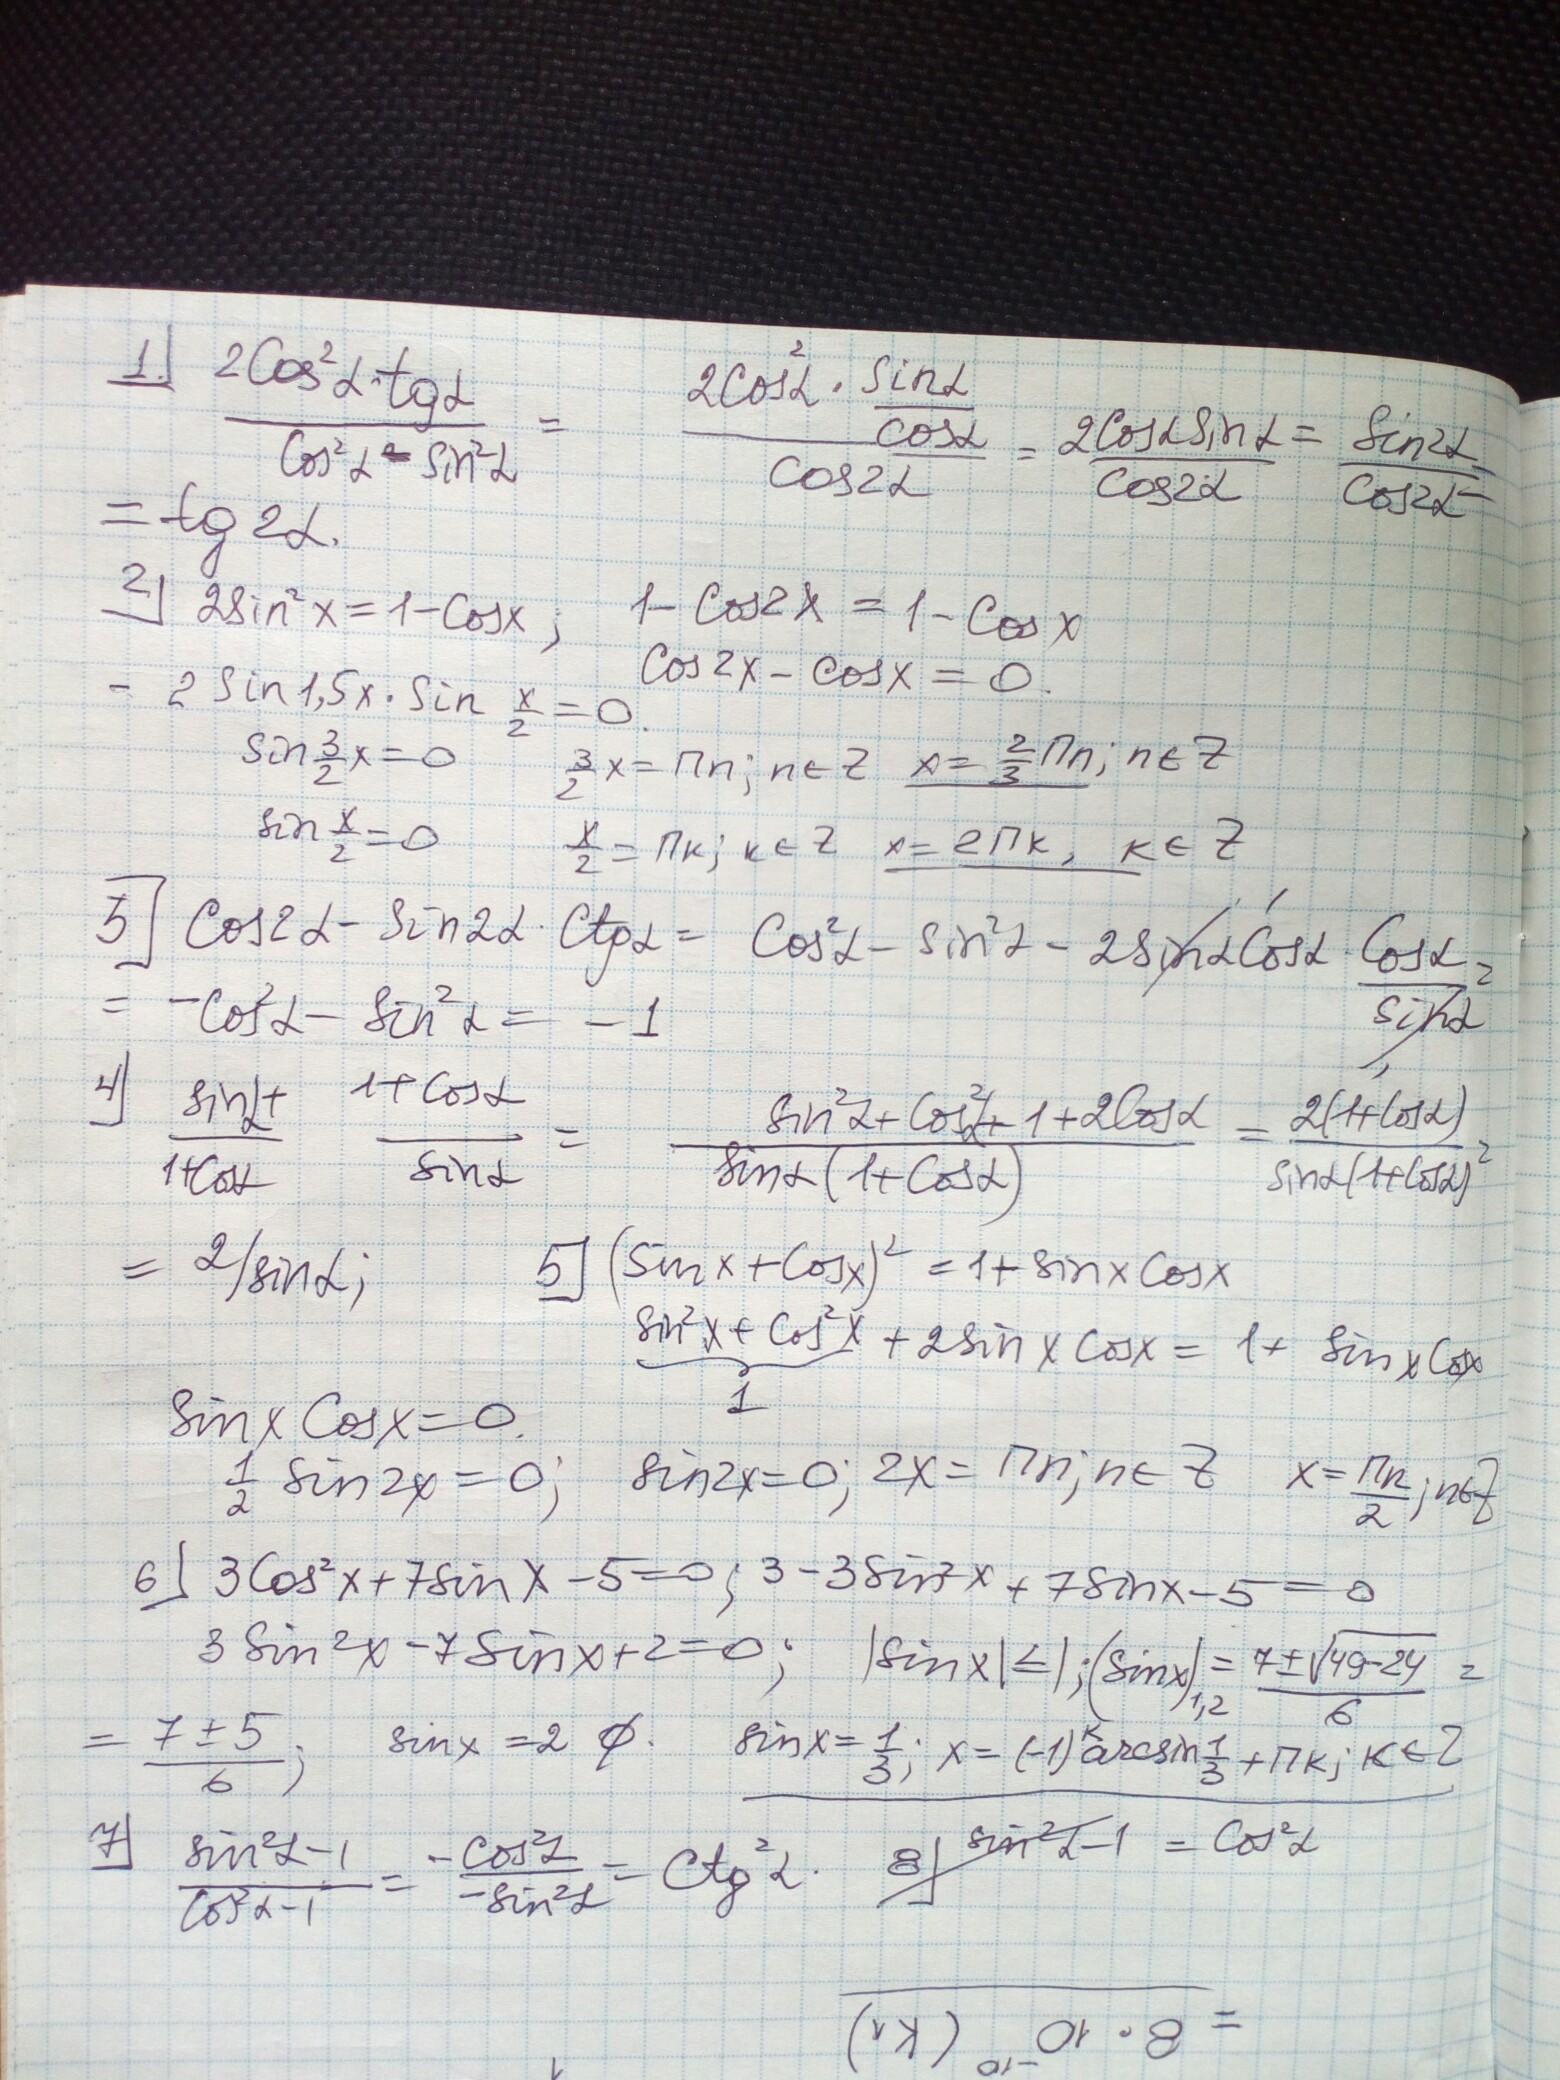 1.] 2Cos²α·tgα / Cos²α - sin²α = 2Cos²α · sinα/cosα / cos2α = 2CosαSinα / Cos2α = Sin2α / Cos2α =
= tg2α.
2] 2sin²x = 1-Cosx; 1-Cos2x = 1-Cosx
Cos2x - cosx = 0.
- 2Sin1,5x · Sin x/2 = 0.
Sin 3/2 x = 0 3/2 x = Пn; n∈Z x = 2/3 Пn; n∈Z
Sin x/2 = 0 x/2 = Пк; к∈Z x = 2Пк, к∈Z
5] Cos2α - Sin2α · Ctgα = Cos²α - Sin²α - 2SinαCosα · Cosα/sinα =
= -Cos²α - Sin²α = -1
4] sinα / 1+Cosα + 1+Cosα / sinα = Sin²α + Cos²α + 1 + 2Cosα / Sinα(1+Cosα) = 2(1+Cosα) / sinα(1+Cosα) =
= 2/sinα; 5] (Sinx+Cosx)² = 1+sinxCosx
Sin²x + Cos²x + 2SinxCosx = 1+ SinxCosx
1
SinxCosx = 0.
1/2 Sin2x = 0; Sin2x = 0; 2x = Пn; n∈Z x = Пn/2; n∈Z
6] 3Cos²x + 7sinx - 5 = 0; 3 - 3Sin²x + 7Sinx - 5 = 0
3Sin²x - 7Sinx + 2 = 0; |Sinx| ≤ 1; (Sinx)1,2 = 7±√49-24 / 6 =
= 7±5 / 6; sinx = 2 ∅. sinx = 1/3; x = (-1)ᴷ arcsin 1/3 + Пк; к∈Z
7] sin²α-1 / Cos²α-1 = -Cos²α / -Sin²α = Ctg²α. 8] sin²α-1 = Cos²α
= 8·10⁻¹⁰ (К1)